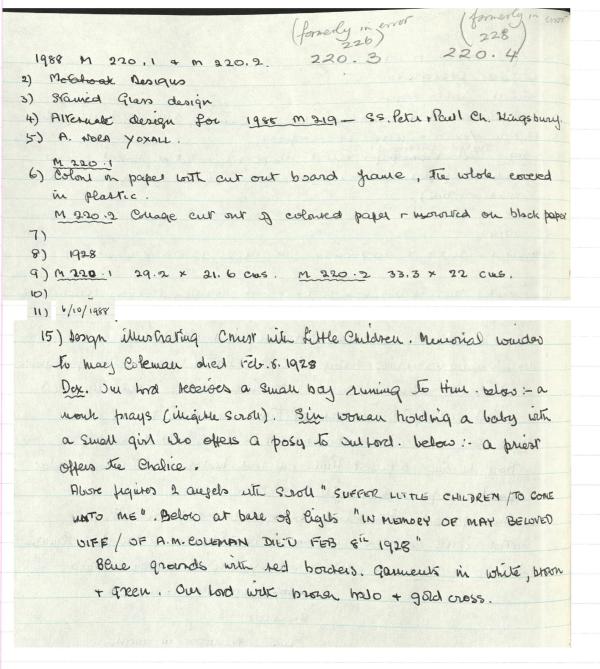 (formerly in error 226)
(formerly in error 228)
1988 M 220.1 & M 220.2. 220.3 220.4
2) Designs
3) Stained Glass design
4) Alternate design for 1988 M 219 – SS. Peter & Paul Ch. Kingsbury.
5) A. NORA YOXALL.
M 220.1
6) Colour on paper with cut out board frame, the whole covered
in plastic.
M 220.2 Collage cut out of coloured paper & mounted on black paper
7)
8) 1928
9) M 220.1 29.2 x 21.6 cms. M 220.2 33.3 x 22 cms.
10)
11) 6/10/1988
15) Design illustrating Christ with Little Children. Memorial window
to May Coleman died Feb. 8. 1928
Dex. Our Lord receives a small boy running to Him. below:- a
monk prays (illegible scroll). Sin woman holding a baby with
a small girl who offers a posy to Our Lord. below:- a priest
offers the Chalice.
Above figures 2 angels with scroll "SUFFER LITTLE CHILDREN / TO COME
UNTO ME". Below at base of lights "IN MEMORY OF MAY BELOVED
WIFE / OF A.M. COLEMAN DIED FEB 8th 1928"
Blue grounds with red borders. Garments in white, brown
+ green. Our Lord with brown halo + gold cross.